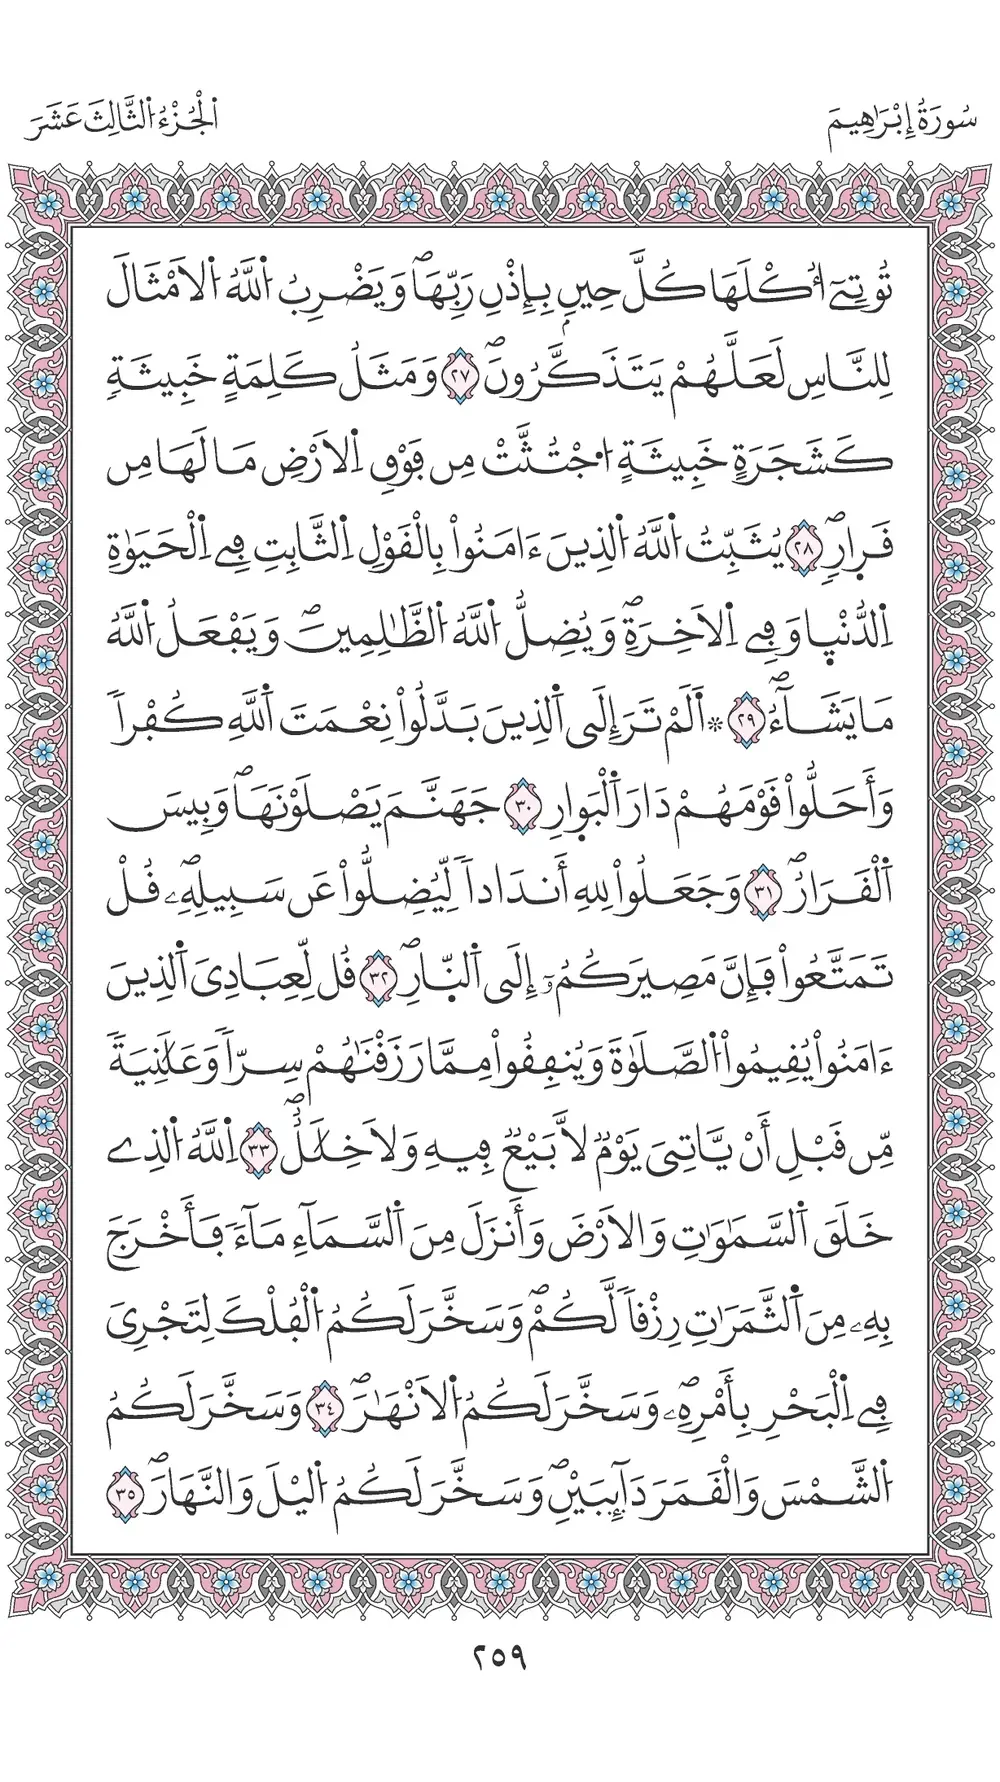 سُورَةُ إِبْرَٰهِيمَ
اَلْجُزْءُ اُلثَّالِثَ عَشَرَ
تُوتِےٓ أُكْلَهَا كُلَّ حِينِۢ بِإِذْنِ رَبِّهَاۖ وَيَضْرِبُ اُللَّهُ اُلَامْثَالَ
لِلنَّاسِ لَعَلَّهُمْ يَتَذَكَّرُونَۖ ٢٧ وَمَثَلُ كَلِمَةٍ خَبِيثَةٖ
كَشَجَرَةٍ خَبِيثَةٍ اُ۟جْتُثَّتْ مِن فَوْقِ اِلَارْضِ مَا لَهَا مِن
قَرارٖۖ ٢٨ يُثَبِّتُ اُللَّهُ اُلذِينَ ءَامَنُواْ بِالْقَوْلِ اِلثَّابِتِ فِے اِلْحَيَوٰةِ
اِلدُّنْيا وَفِے اِلَاخِرَةِۖ وَيُضِلُّ اُللَّهُ اُلظَّٰلِمِينَۖ وَيَفْعَلُ اُللَّهُ
مَا يَشَآءُۖ ٢٩ ۞ أَلَمْ تَرَ إِلَى اَلذِينَ بَدَّلُواْ نِعْمَتَ اَللَّهِ كُفْراٗ
وَأَحَلُّواْ قَوْمَهُمْ دَارَ اَلْبَوارِ ٣٠ جَهَنَّمَ يَصْلَوْنَهَاۖ وَبِيسَ
اَلْقَرَارُۖ ٣١ وَجَعَلُواْ لِلهِ أَندَاداٗ لِّيُضِلُّواْ عَن سَبِيلِهِۦۖ قُلْ
تَمَتَّعُواْ فَإِنَّ مَصِيرَكُمُۥٓ إِلَى اَلنّ۪ارِۖ ٣٢ قُل لِّعِبَادِىَ اَلذِينَ
ءَامَنُواْ يُقِيمُواْ اُلصَّلَوٰةَ وَيُنفِقُواْ مِمَّا رَزَقْنَٰهُمْ سِرّاٗ وَعَلَٰنِيَةٗ
مِّن قَبْلِ أَنْ يَّاتِىَ يَوْمٞ لَّا بَيْعٞ فِيهِ وَلَا خِلَٰلٌۖ ٣٣ اِ۬للَّهُ اُلذِے
خَلَقَ اَلسَّمَٰوَٰتِ وَالَارْضَ وَأَنزَلَ مِنَ اَلسَّمَآءِ مَآءٗ فَأَخْرَجَ
بِهِۦ مِنَ اَلثَّمَرَٰتِ رِزْقاٗ لَّكُمْۖ وَسَخَّرَ لَكُمُ اُلْفُلْكَ لِتَجْرِىَ
فِے اِلْبَحْرِ بِأَمْرِهِۦۖ وَسَخَّرَ لَكُمُ اُلَانْهَٰرَۖ ٣٤ وَسَخَّرَ لَكُمُ
اُلشَّمْسَ وَالْقَمَرَ دَآئِبَيْنِۖ وَسَخَّرَ لَكُمُ اُليْلَ وَالنَّهَارَۖ ٣٥
٢٥٩